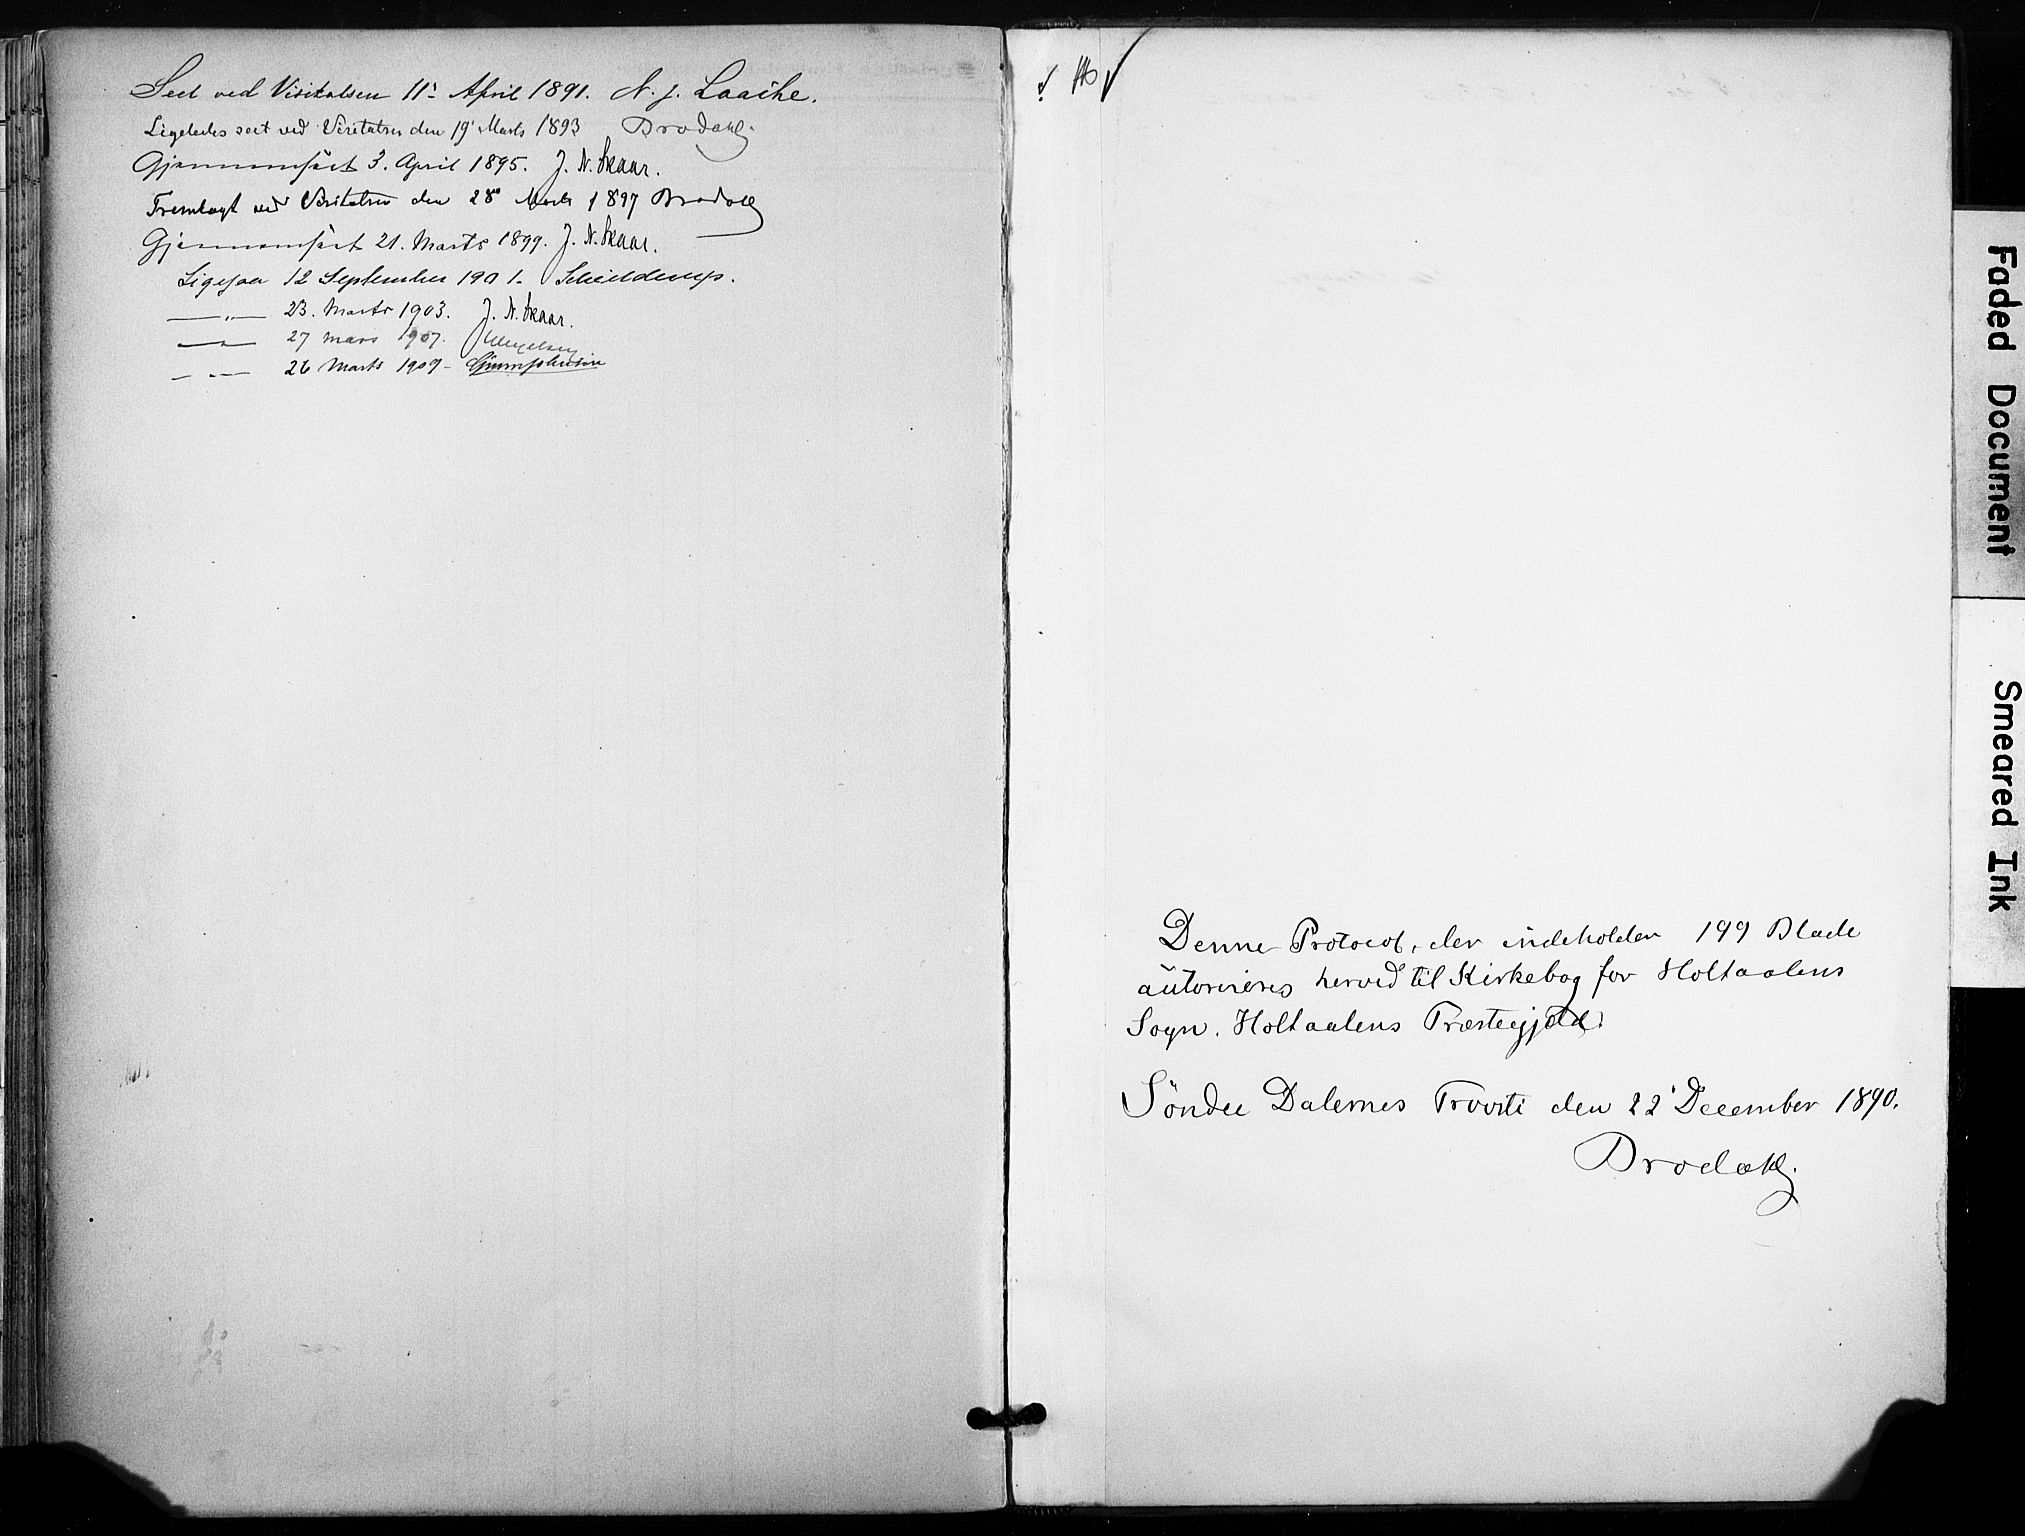 Seet ved Visitatsen 11te April 1891. N. J. Laache.
Ligeledes seet ved Visitatsen den 19' Marts 1893 Brodahl.
Gjennemseet 3. April 1895. J. N. Skaar.
Fremlagt ved Visitatsen den 28de Marts 1897 Brodahl
Gjennemseet 21. Marts 1899. J. N. Skaar.
Ligesaa 12 September 1901. Schielderup.
—"— 23. Marts 1903. J. N. Skaar.
—"— 27 mars 1907.
—"— 26 Marts 1909 -
Denne Protocol, der indeholder 199 Blade
autoriseres herved til Kirkebog for Holtaalens
Sogn. Holtaalens Præstegjeld.
Söndre Dalernes Provsti den 22' December 1890.
Brodahl.
Faded Document
Smeared Ink